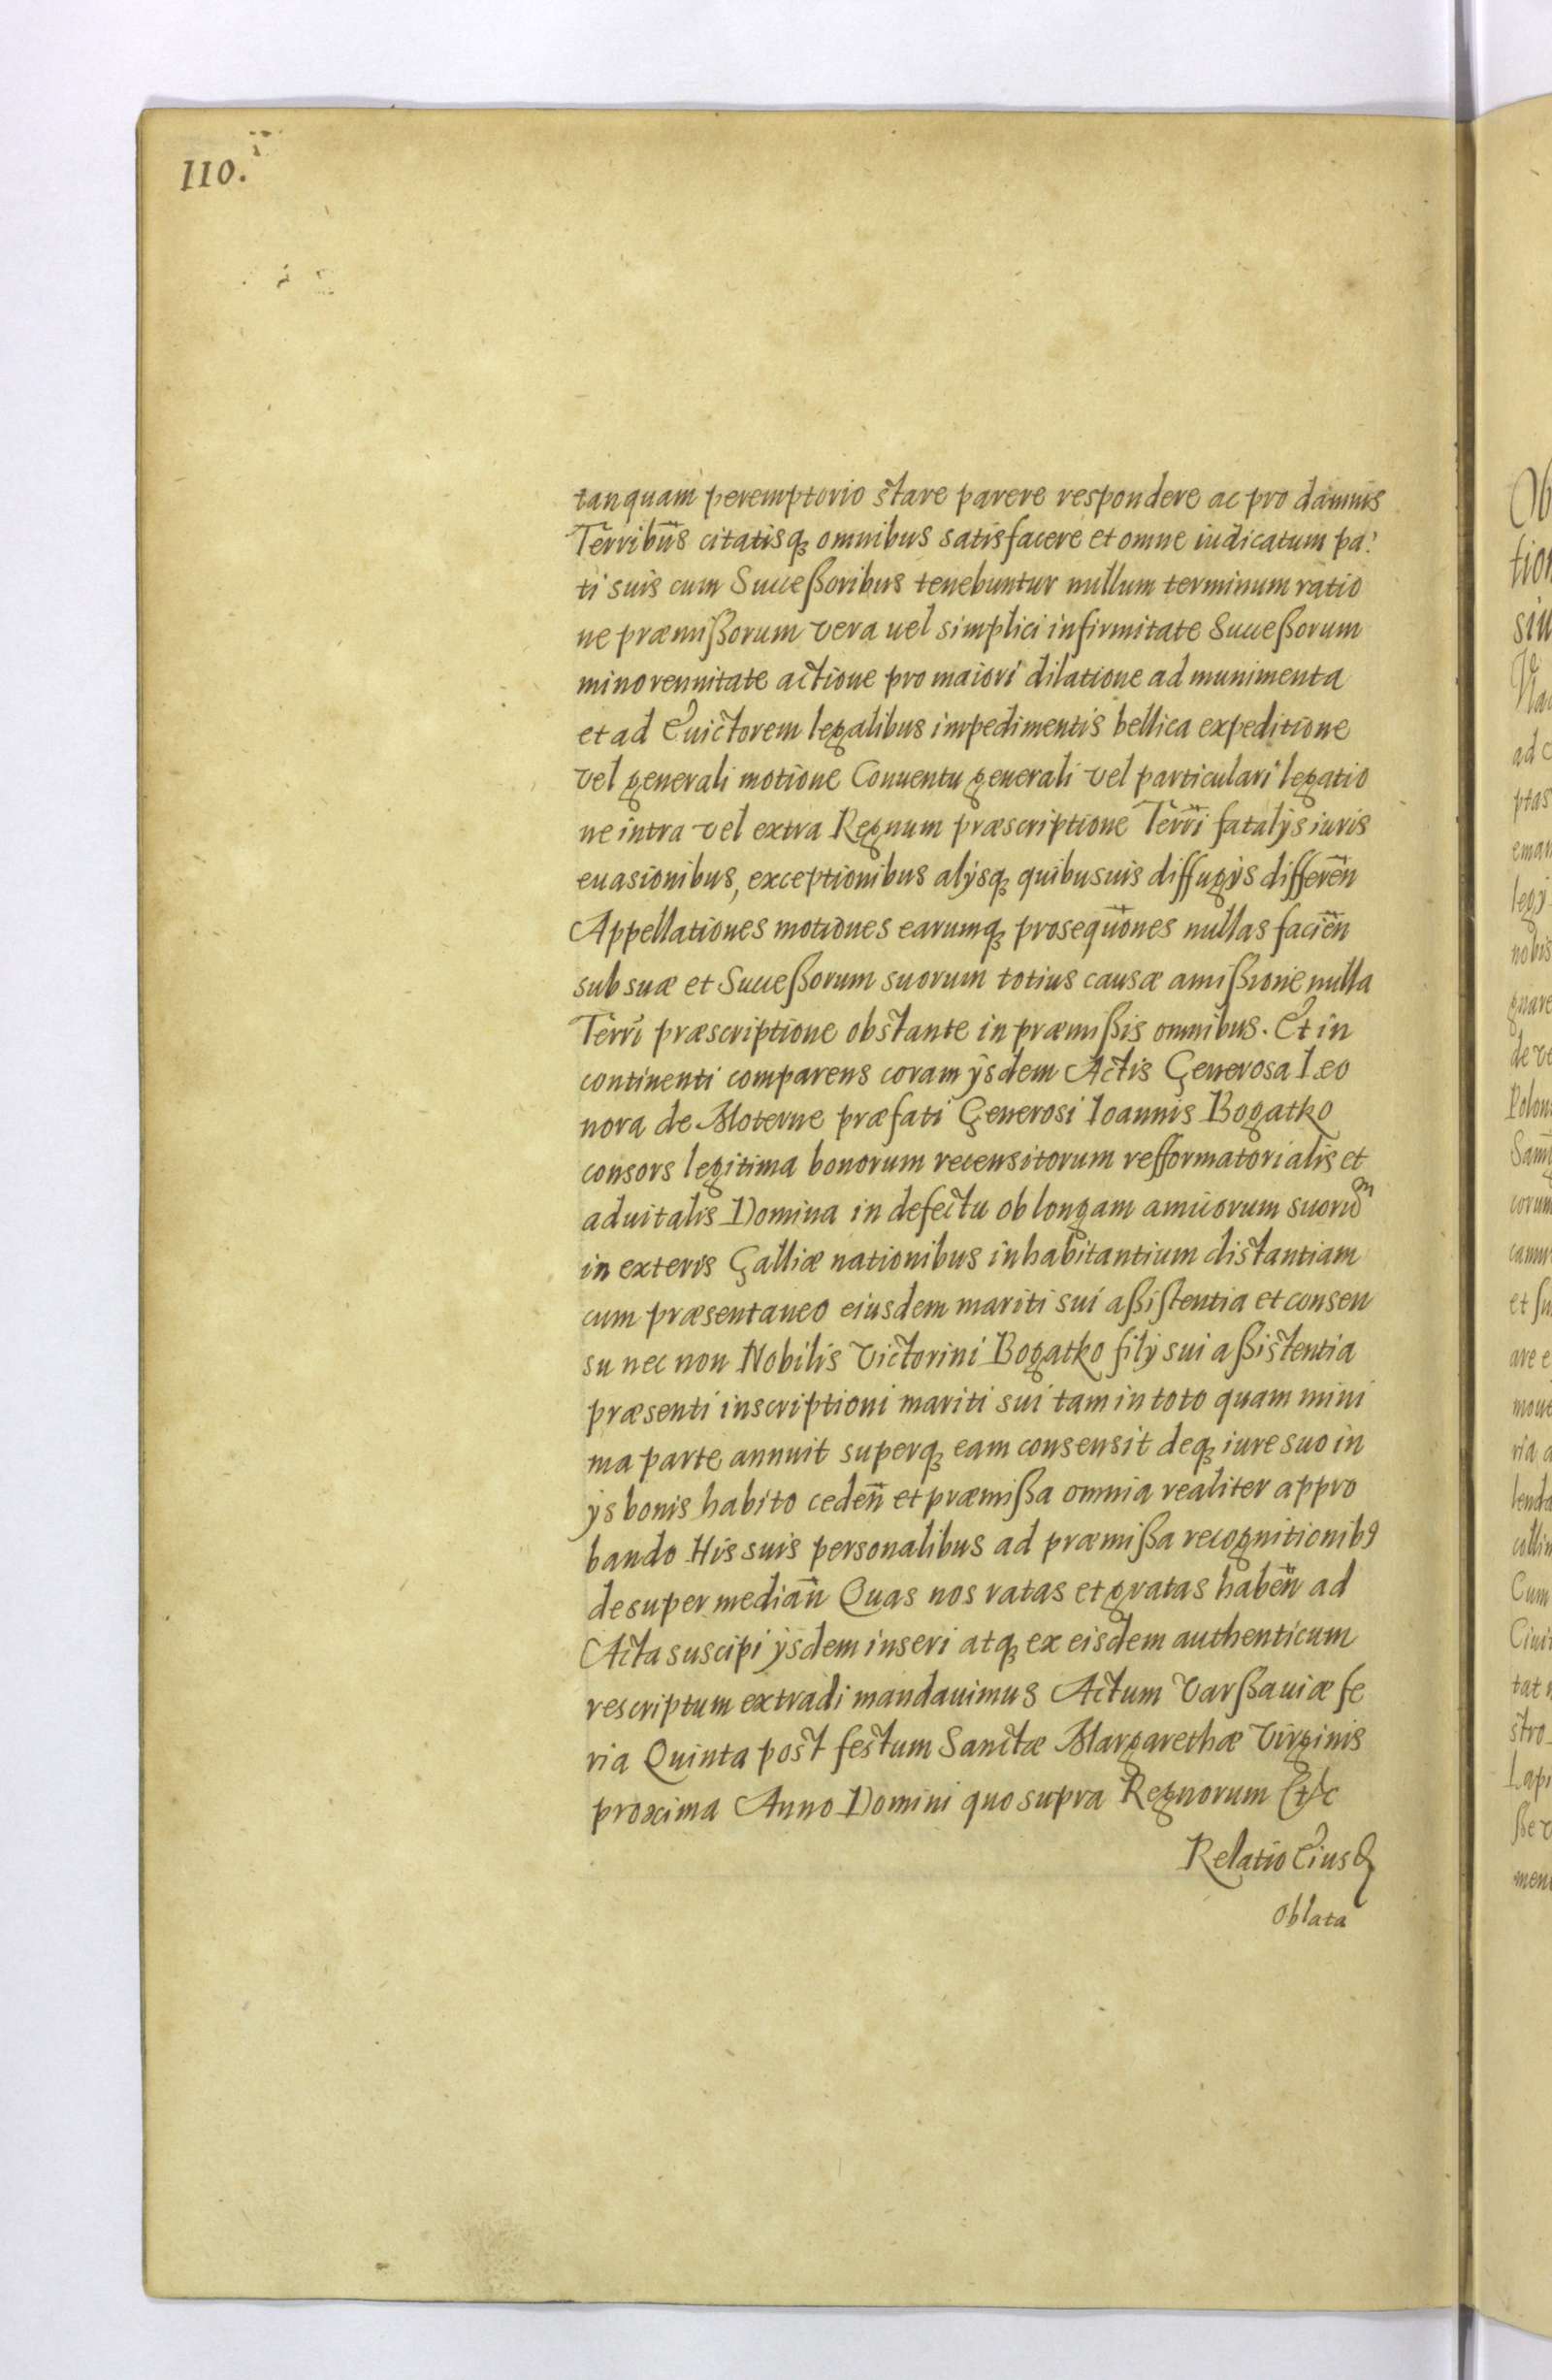 110.
tanquam peremptorio stare parere respondere ac pro damnis
Terribus citatisq₃ omnibus satisfacere et omne iudicatum pa:
ti suis cum Succeßoribus tenebuntur nullum terminum ratio
ne præmißorum vera uel simplici infirmitate Succeßorum
minorennitate actione pro maiori dilatione ad munimenta
et ad Euictorem legalibus impedimentis bellica expeditione
vel generali motione Conuentu generali vel particulari legatio
ne intra vel extra Regnum præscriptione Terri fatalÿs iuris
euasionibus, exceptionibus alÿsq₃ quibusuis diffugÿs differen̄
Appellationes motiones earumq₃ prosequōnes nullas facien̄
sub suæ et Succeßorum suorum totius causæ amißione nulla
Terri præscriptione obstante in præmißis omnibus. Et in
continenti comparens coram ÿsdem Actis Generosa Leo
nora de Moterne præfati Generosi Ioannis Bogatko
consors legitima bonorum recensitorum refformatorialis et
aduitalis Domina in defectu ob longam amicorum suorum
in exteris Galliæ nationibus inhabitantium distantiam
cum præsentaneo eiusdem mariti sui aßistentia et consen
su nec non Nobilis Victorini Bogatko filÿ sui aßistentia
præsenti inscriptioni mariti sui tam in toto quam mini
ma parte annuit superq₃ eam consensit deq₃ iure suo in
ÿs bonis habito ceden̄ et præmißa omnia realiter appro
bando His suis personalibus ad præmißa recognitionibꝰ
desuper median̄ Quas nos ratas et gratas haben̄ ad
Acta suscipi ÿsdem inseri atq₃ ex eisdem authenticum
rescriptum extradi mandauimus Actum Varßauiæ fe
ria Quinta post festum Sanctæ Margarethæ Virginis
proxima Anno Domini quo supra Regnorum Etc
Relatio Eiusd
Oblata